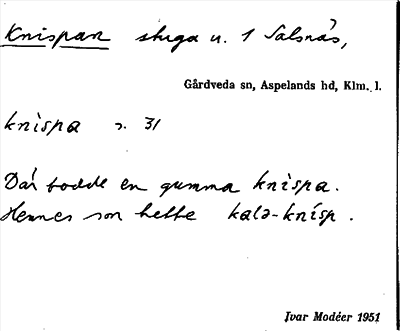 Knispan stuga u. 1 Salsnäs,
Gårdveda sn, Aspelands hd, Klm. l.
knìspa s. 31
Där bodde en gumma knìspa.
Hennes son hette kalə-knísp.
Ivar Modéer 1951